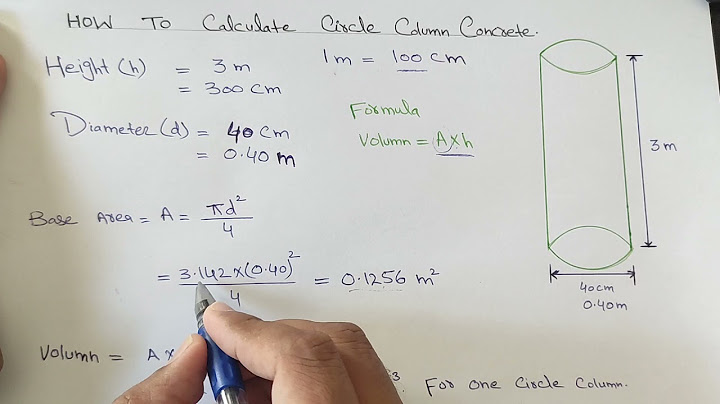 HOW TO Calculate Circle Column Concrete.
Height (h) = 3 m
= 300 cm
1 m = 100 cm
Diameter (d) = 40 cm
= 0.40 m
Formula
Volumn = A x h
3 m
Base Area = A = πd²/4
= 3.142 x (0.40)²/4 = 0.1256 m²
40 cm
0.40 m
Volumn = A x
3 For one Circle Column.